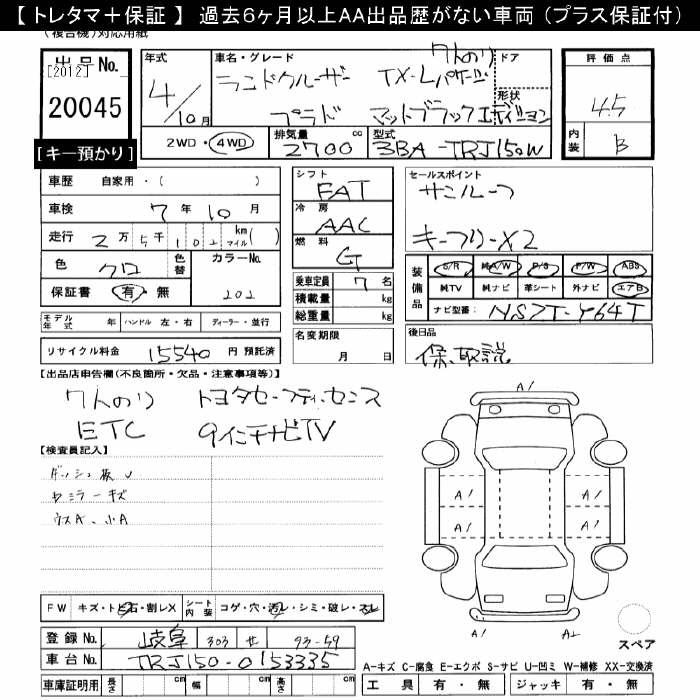 【 トレタマ＋保証 】 過去6ヶ月以上AA出品歴がない車両（プラス保証付）
(複合機)対応用紙
出品No.
[2012]
20045
[キー預かり]
年式
4/10月
車名・グレード
7人のり
ドア
ランドクルーザー TX-Lパッケージ
形状
プラド マットブラックエディション
2WD・4WD
排気量 cc
2700
型式
3BA-TRJ150W
評価点
4.5
内装
B
車歴 自家用・( )
車検 7年10月
走行 2万5千102 km マイル( )
色 クロ
色替
カラーNo.
202
保証書 有・無
モデル年式 年 ハンドル 左・右 ディーラー・並行
リサイクル料金 15540 円 預託済
シフト
FAT
冷房
AAC
燃料
G
乗車定員 7 名
積載量 kg
総重量 kg
名変期限
月 日
セールスポイント
サンルーフ
キーフリーX2
装備品
S/R 純A/W P/S P/W ABS
純TV 純ナビ 革シート 外ナビ エアB
ナビ型番: NSZT-Y64T
後日品
保、取説
【出品店申告欄(不良箇所・欠品・注意事項等)】
7人のり トヨタセーフティセンス
ETC 9インチナビTV
【検査員記入】
ダッシュ板U
ミラーキズ
ウスA、小A
FW キズ・トビ石・割レX
シート内装 コゲ・穴・汚レ・シミ・破レ・スレ
登録No. 岐阜 303 せ 93-59
車台No. TRJ150-0153335
車庫証明用 長さ cm 幅 cm 高さ cm
A1
A1 A1
A1 A1
A1 A2
スペア
A-キズ C-腐食 E-エクボ S-サビ U-凹ミ W-補修 XX-交換済
工具 有・無 ジャッキ 有・無